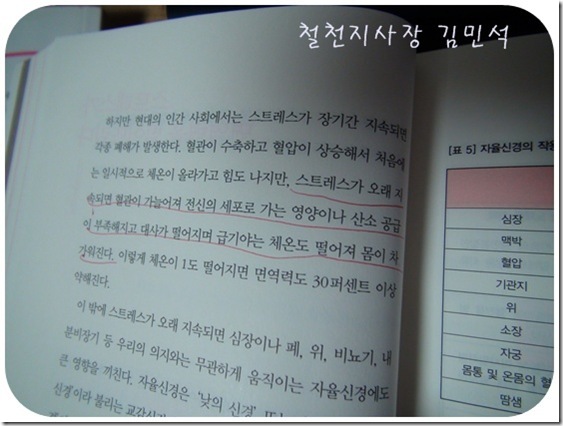 철천지사장 김민석
하지만 현대의 인간 사회에서는 스트레스가 장기간 지속되면
각종 폐해가 발생한다. 혈관이 수축하고 혈압이 상승해서 처음에
는 일시적으로 체온이 올라가고 힘도 나지만, 스트레스가 오래 지
속되면 혈관이 가늘어져 전신의 세포로 가는 영양이나 산소 공급
이 부족해지고 대사가 떨어지며 급기야는 체온도 떨어져 몸이 차
가워진다. 이렇게 체온이 1도 떨어지면 면역력도 30퍼센트 이상
약해진다.
이 밖에 스트레스가 오래 지속되면 심장이나 폐, 위, 비뇨기, 내
분비장기 등 우리의 의지와는 무관하게 움직이는 자율신경에도
큰 영향을 끼친다. 자율신경은 '낮의 신경'
신경'이라 불리는 교감신
[표 5] 자율신경의 작용
심장
맥박
혈압
기관지
위
소장
자궁
몸통 및 온몸의 혈
땀샘